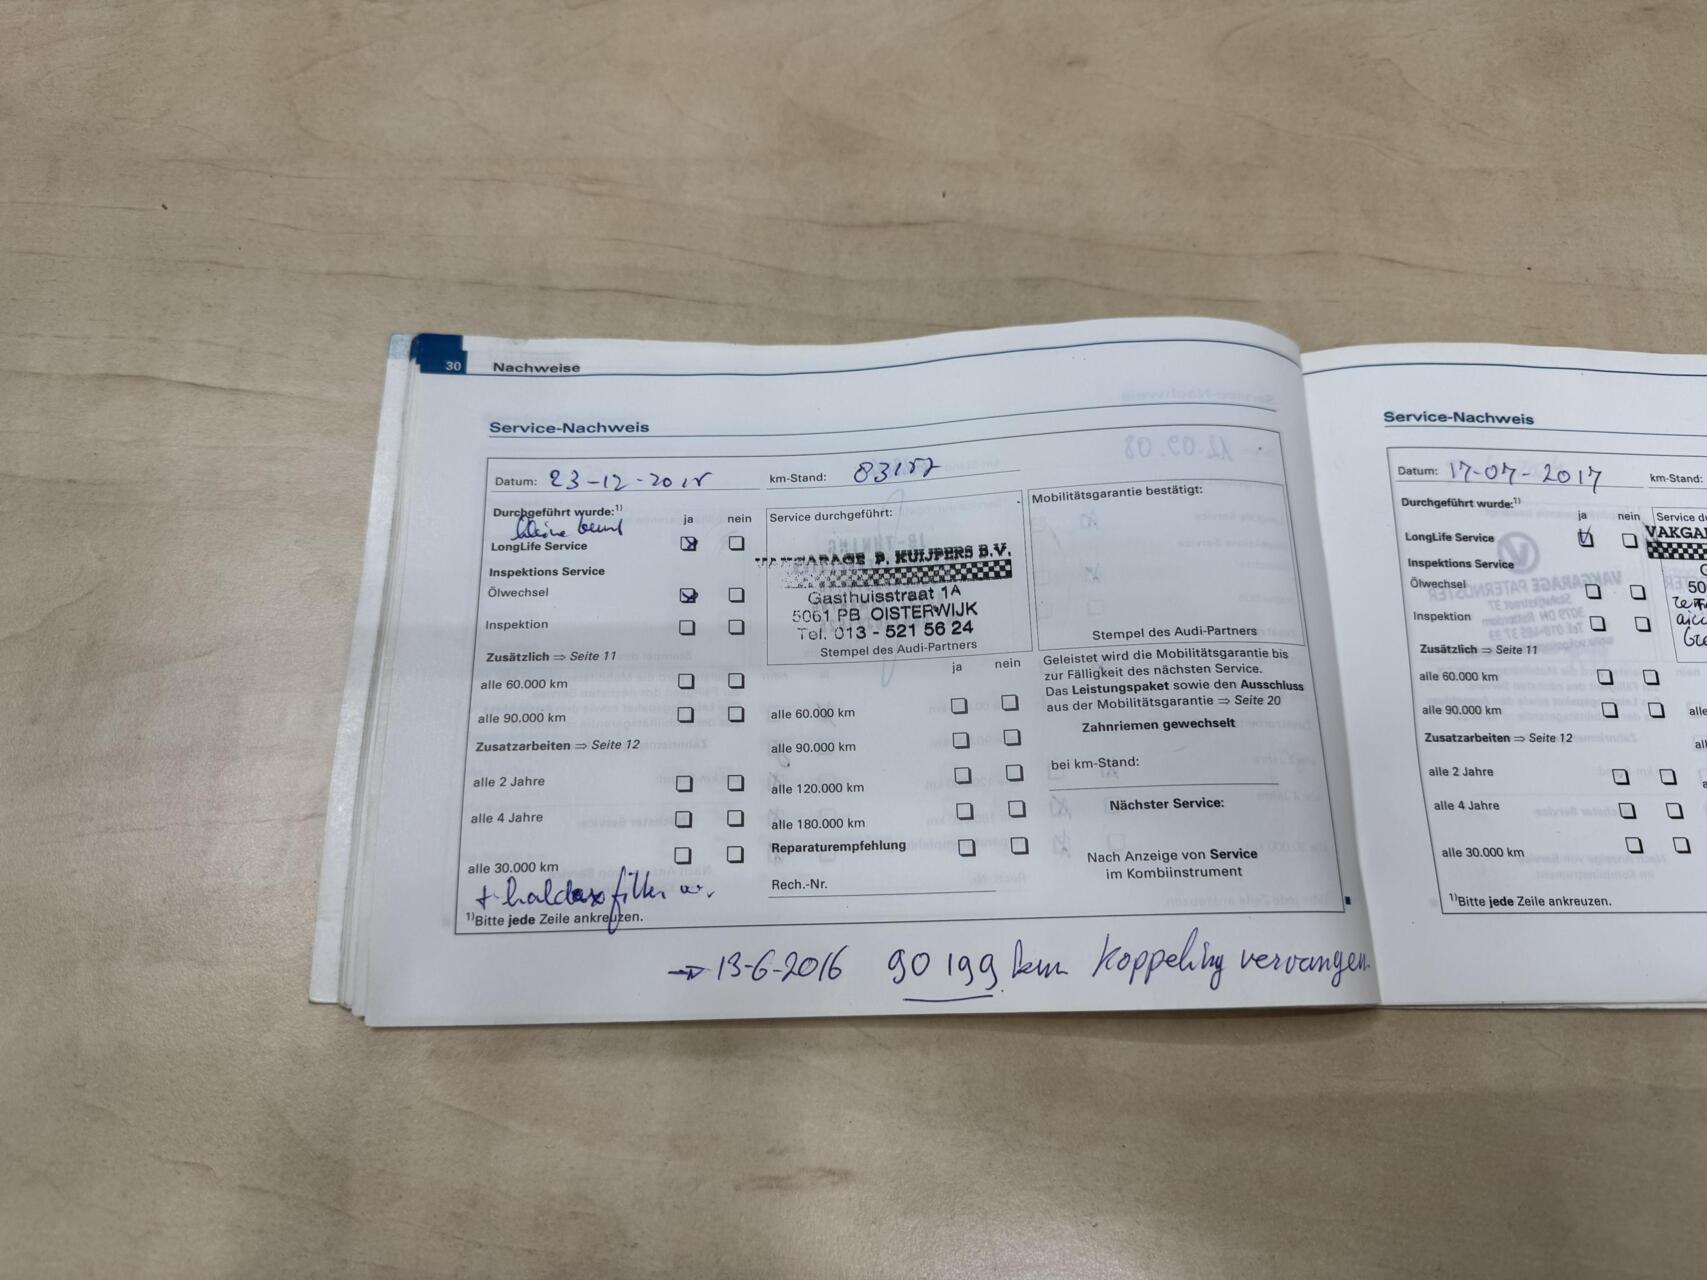 30 Nachweise
Service-Nachweis
Datum: 23-12-2015 km-Stand: 83157
Durchgeführt wurde:¹⁾ ja nein
kleine beurt
LongLife Service
Inspektions Service
Ölwechsel
Inspektion
Zusätzlich ⇒ Seite 11
alle 60.000 km
alle 90.000 km
Zusatzarbeiten ⇒ Seite 12
alle 2 Jahre
alle 4 Jahre
alle 30.000 km
+ haldex filter
¹⁾Bitte jede Zeile ankreuzen.
Service durchgeführt:
VAKGARAGE P. KUIJPERS B.V.
Gasthuisstraat 1A
5061 PB OISTERWIJK
Tel. 013 - 521 56 24
Stempel des Audi-Partners
ja nein
alle 60.000 km
alle 90.000 km
alle 120.000 km
alle 180.000 km
Reparaturempfehlung
Rech.-Nr.
Mobilitätsgarantie bestätigt:
Stempel des Audi-Partners
Geleistet wird die Mobilitätsgarantie bis
zur Fälligkeit des nächsten Service.
Das Leistungspaket sowie den Ausschluss
aus der Mobilitätsgarantie ⇒ Seite 20
Zahnriemen gewechselt
bei km-Stand:
Nächster Service:
Nach Anzeige von Service
im Kombiinstrument
→ 13-6-2016 90199 km Koppeling vervangen.
Service-Nachweis
Datum: 17-07-2017 km-Stand:
Durchgeführt wurde:¹⁾
ja nein
LongLife Service
Inspektions Service
Ölwechsel
Inspektion
Zusätzlich ⇒ Seite 11
alle 60.000 km
alle 90.000 km
Zusatzarbeiten ⇒ Seite 12
alle 2 Jahre
alle 4 Jahre
alle 30.000 km
¹⁾Bitte jede Zeile ankreuzen.